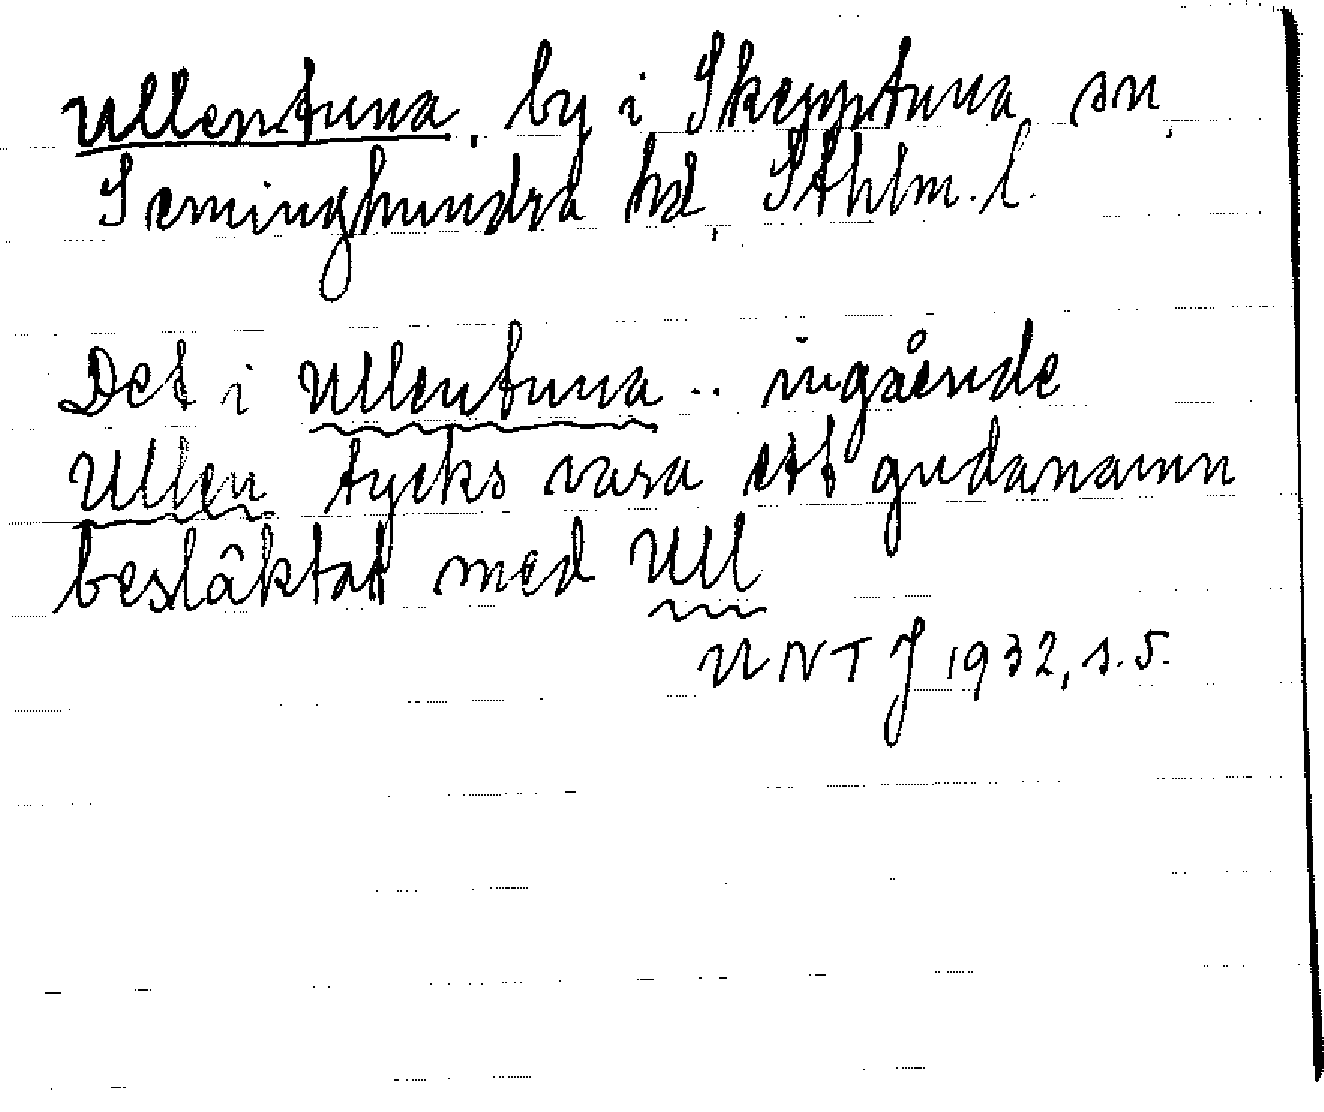 Ullentuna, by i Skepptuna sn,
Seminghundra hd, Sthlm.l.
Det i Ullentuna .. ingående
Ullen tycks vara ett gudanamn
besläktat med Ull
UNT J 1932, s.5.